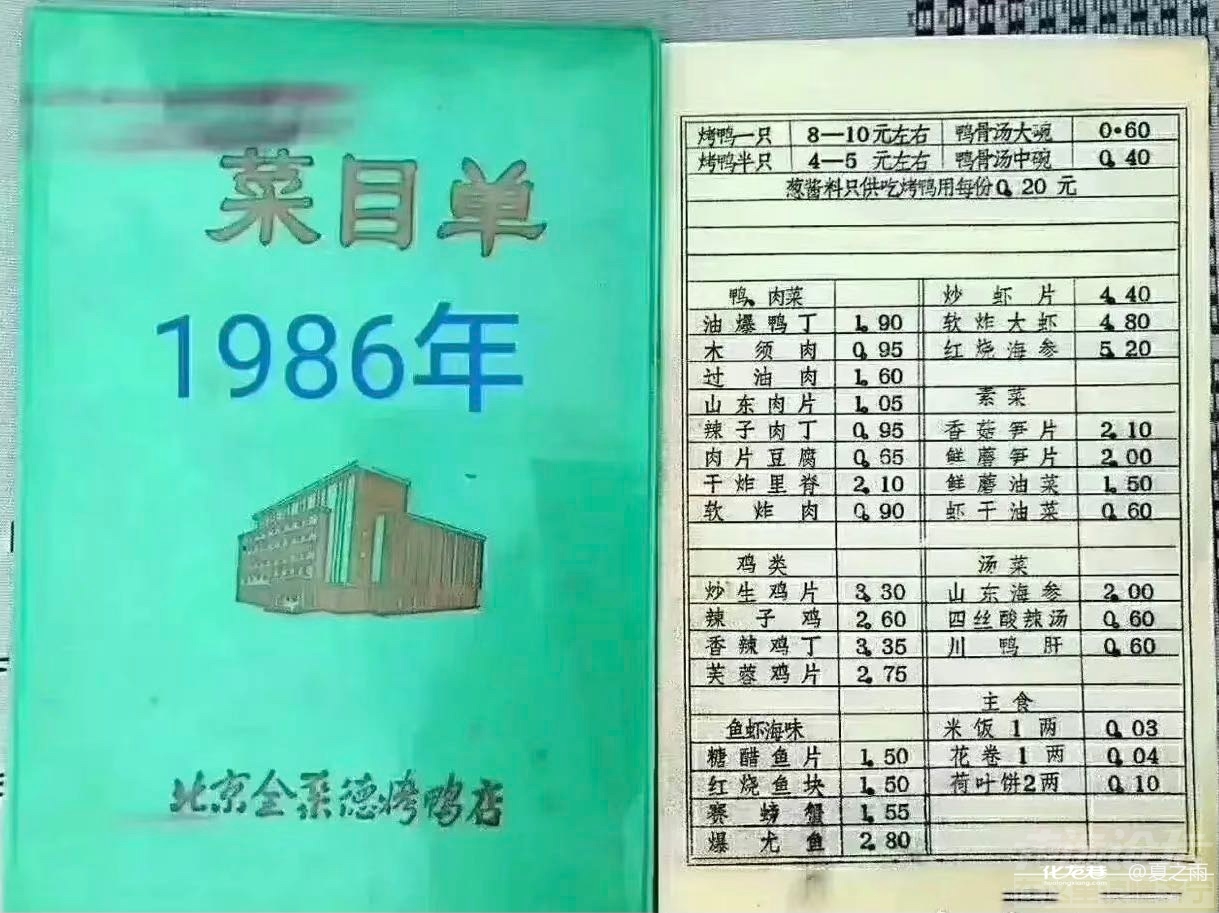 菜目单
1986年
北京全聚德烤鸭店
烤鸭一只 8—10元左右 鸭骨汤大碗 0.60
烤鸭半只 4—5 元左右 鸭骨汤中碗 0.40
葱酱料只供吃烤鸭用每份0.20 元
鸭、肉菜 炒虾片 4.40
油爆鸭丁 1.90 软炸大虾 4.80
木须肉 0.95 红烧海参 5.20
过油肉 1.60
山东肉片 1.05 素菜
辣子肉丁 0.95 香菇笋片 2.10
肉片豆腐 0.65 鲜蘑笋片 2.00
干炸里脊 2.10 鲜蘑油菜 1.50
软炸肉 0.90 虾干油菜 0.60
鸡类 汤菜
炒生鸡片 3.30 山东海参 2.00
辣子鸡 2.60 四丝酸辣汤 0.60
香辣鸡丁 3.35 川鸭肝 0.60
芙蓉鸡片 2.75
主食
鱼虾海味 米饭1两 0.03
糖醋鱼片 1.50 花卷1两 0.04
红烧鱼块 1.50 荷叶饼2两 0.10
赛螃蟹 1.55
爆尤鱼 2.80
化龙巷 @夏之雨